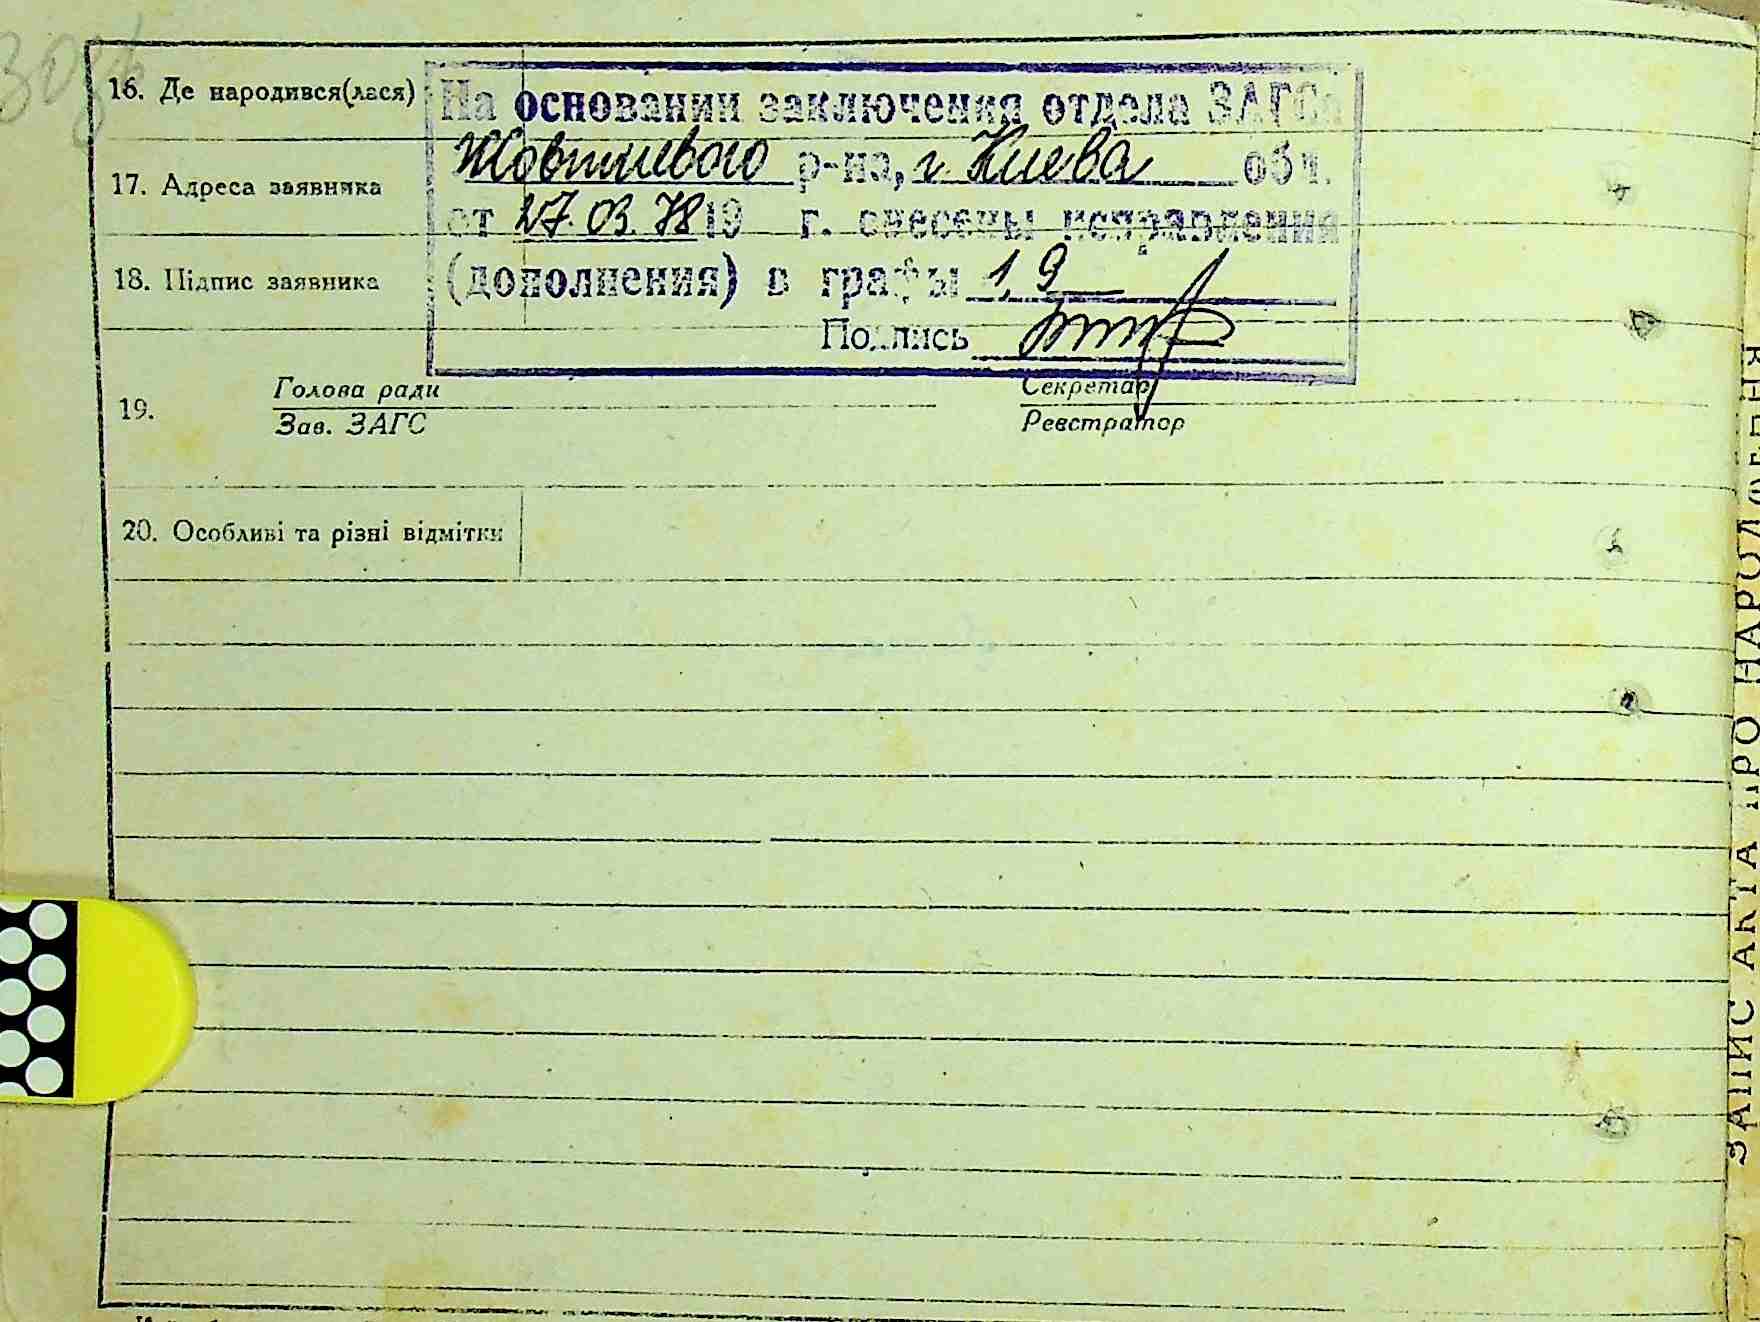 16. Де народився(лася)
На основании заключения отдела ЗАГСа
Жовтневого р-на, г. Киева обл.
17. Адреса заявника
от 27.03.78 19 г. внесены исправления
18. Підпис заявника
(дополнения) в графы 1, 9
Подпись
19.
Голова ради
Зав. ЗАГС
Секретар
Реєстратор
20. Особливі та різні відмітки
ЗАПИС АКТА ПРО НАРОДЖЕННЯ